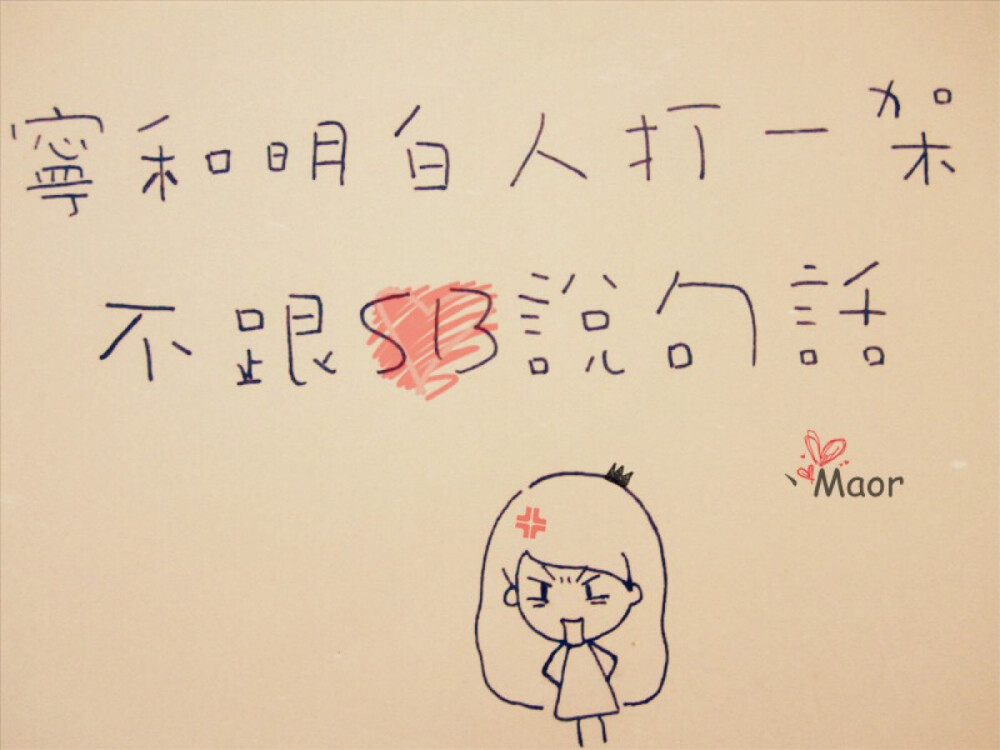 寧和明白人打一架
不跟SB說句話
、Maor